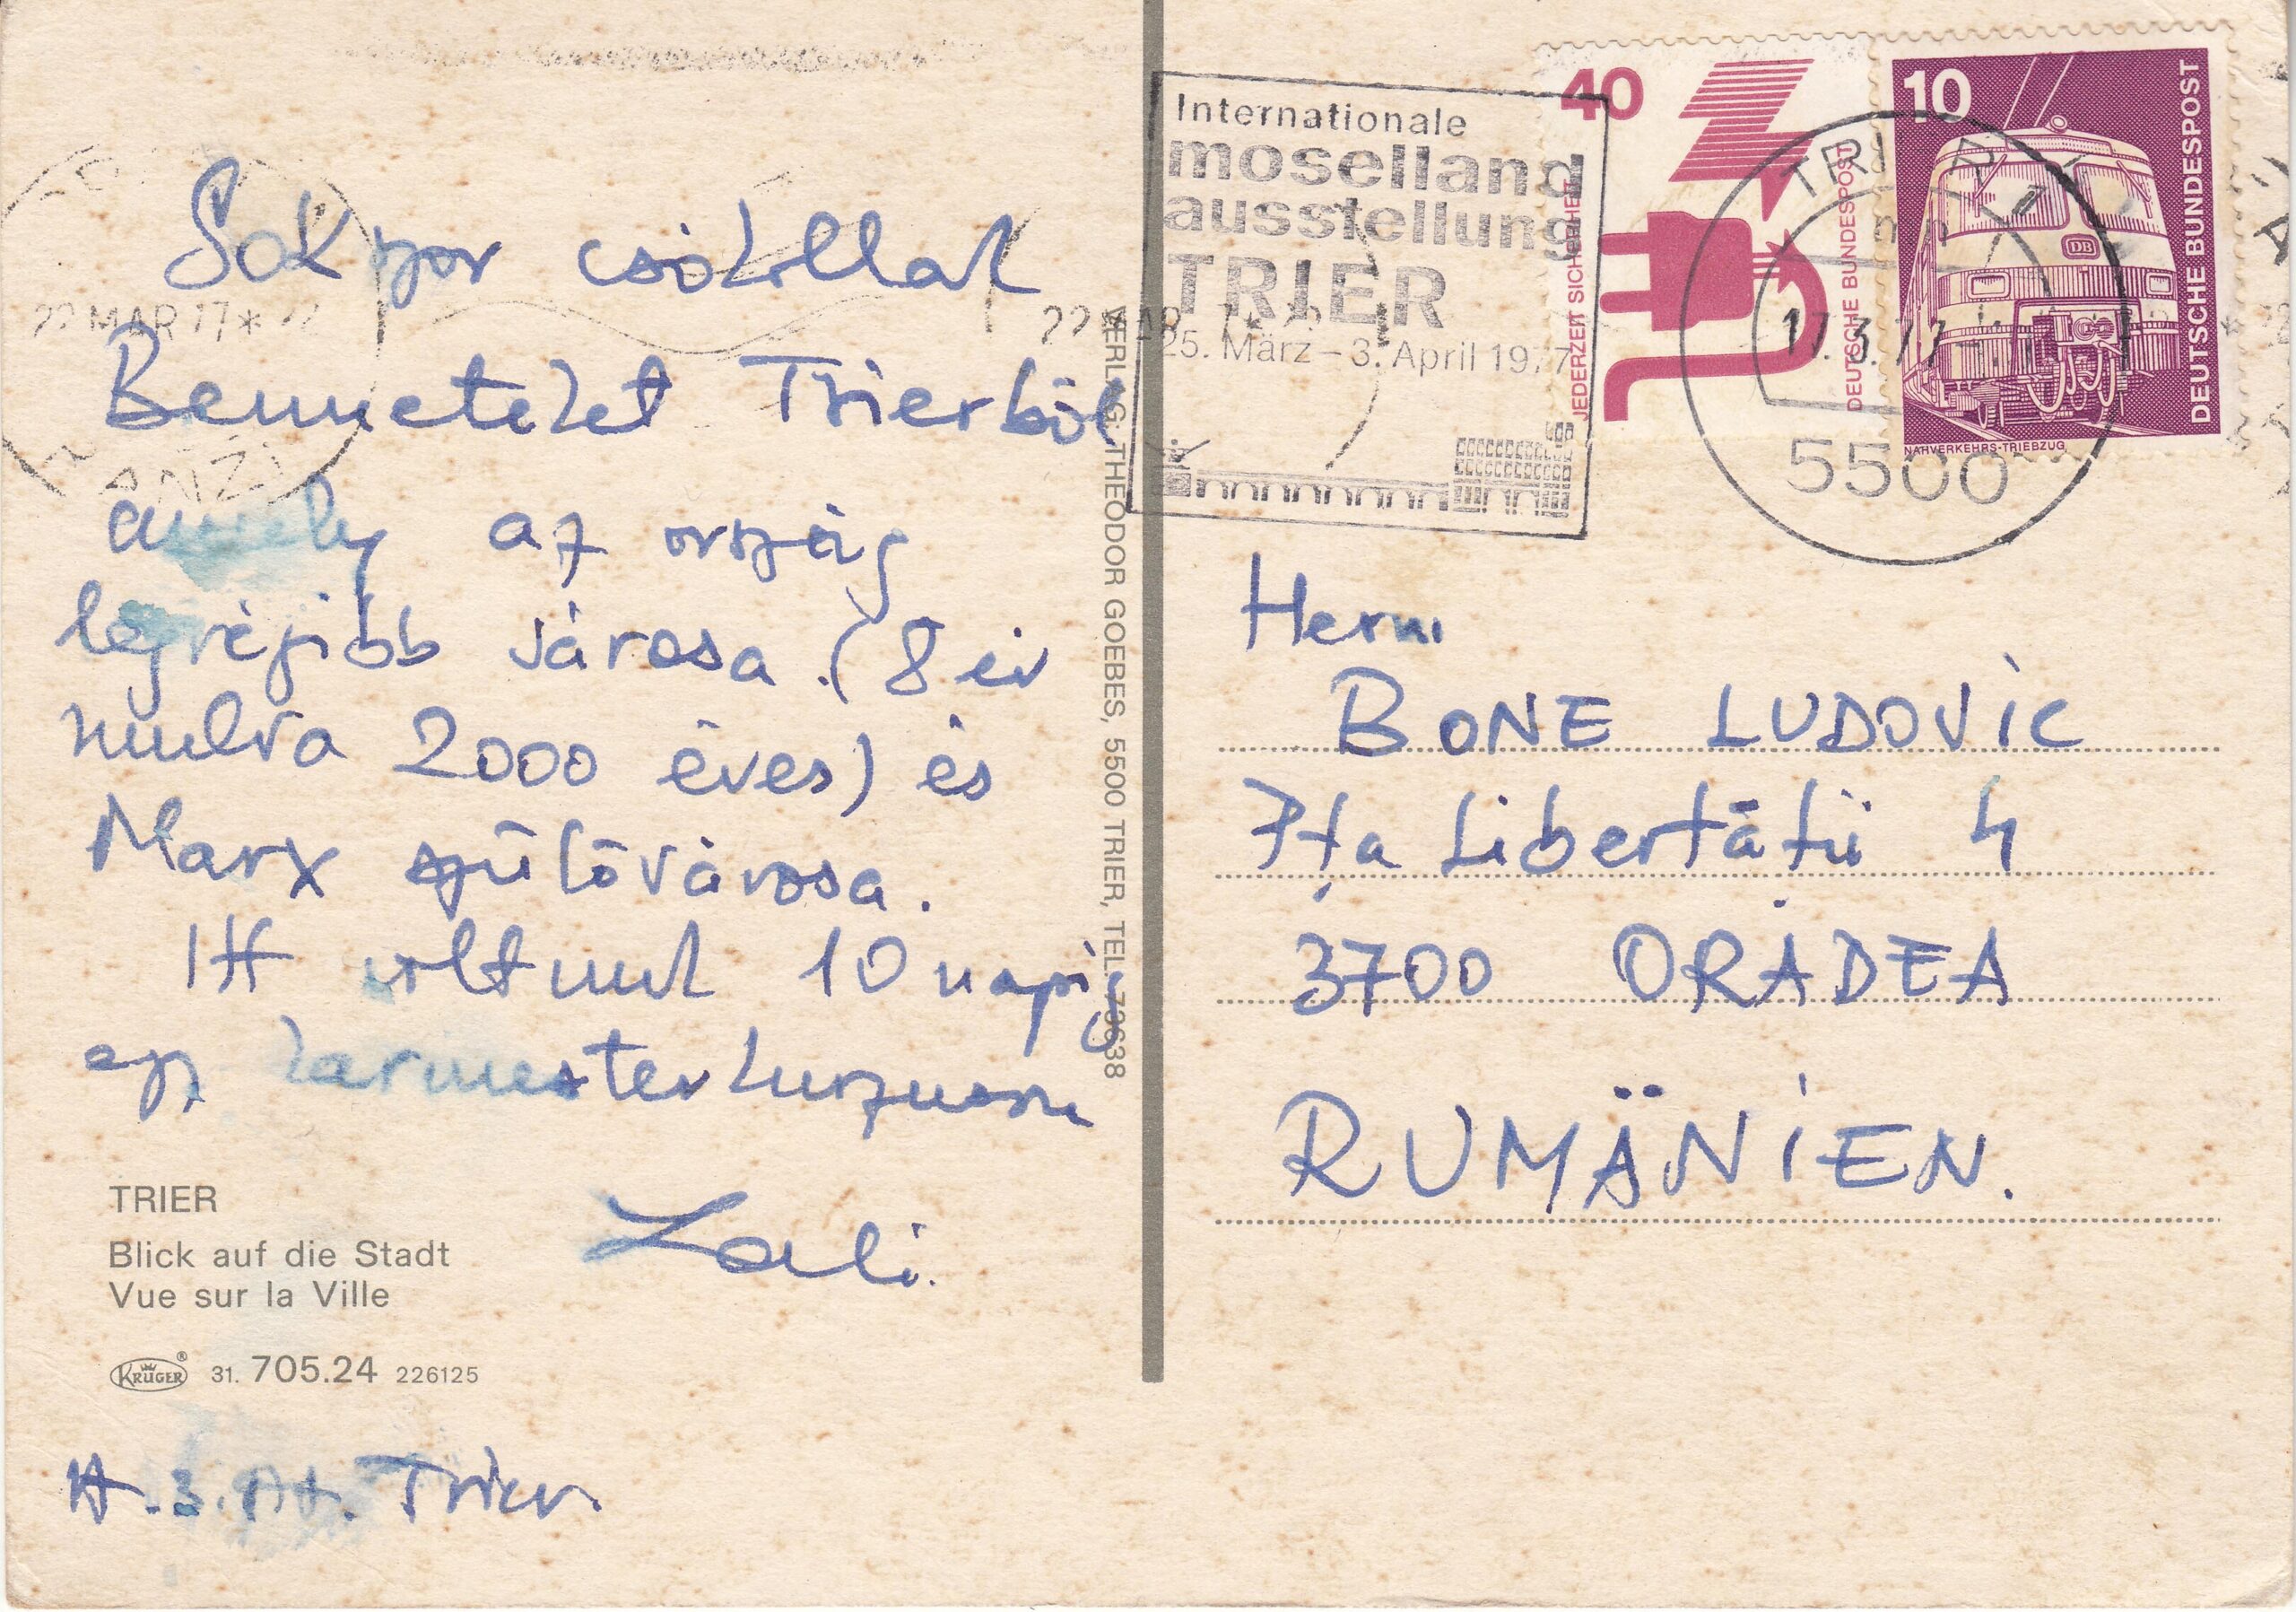 Sokszor csókollak
Benneteket Trierből
amely az ország
legrégibb városa (8 év
mulva 2000 éves) és
Marx szülővárosa.
Itt voltunk 10 napig
egy karmesterkurzuson
Lali.
TRIER
Blick auf die Stadt
Vue sur la Ville
KRÜGER® 31. 705.24 226125
17. 3. 77. Trier.
VERLAG: THEODOR GOEBES, 5500 TRIER, TEL. 73638
22 MAR 77*
22 MAR
Internationale
moselland
ausstellung
TRIER
25. März – 3. April 1977
40
JEDERZEIT SICHERHEIT
DEUTSCHE BUNDESPOST
10
DB
DEUTSCHE BUNDESPOST
NAHVERKEHRS-TRIEBZUG
TRIER 1
17.3.77
5500
Herrn
BONE LUDOVIC
Pța Libertății 4
3700 ORADEA
RUMÄNIEN.